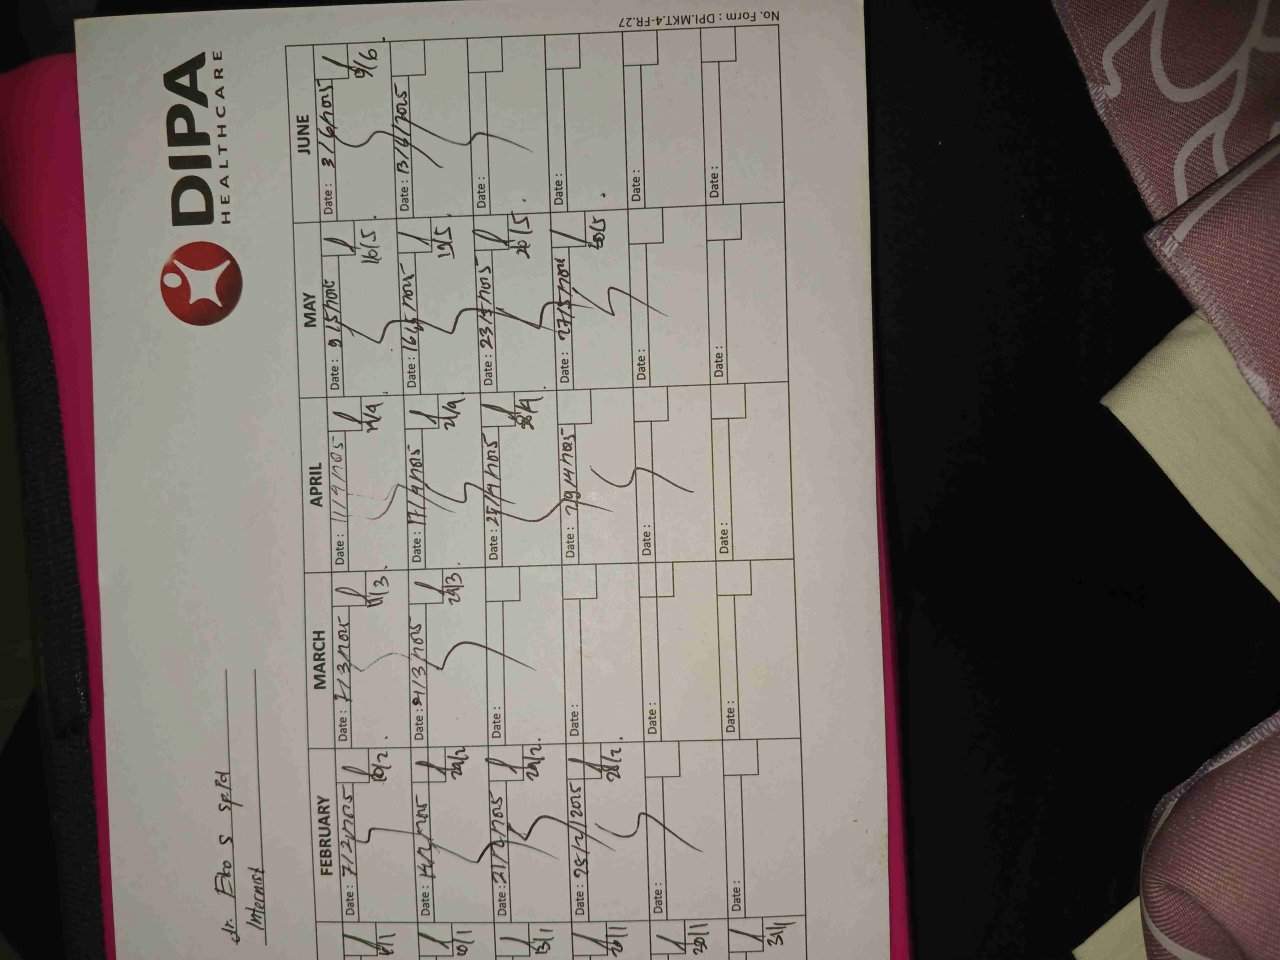 DIPA
HEALTHCARE
dr. Eko S SpPd
Internist
FEBRUARY MARCH APRIL MAY JUNE
Date : 7/2/2025 Date : 7/3/2025 Date : 11/4/2025 Date : 9/5/2025 Date : 3/6/2025
10/2 11/3 16/5 9/6
Date : 14/2/2025 Date : 21/3/2025 Date : 17/4/2025 Date : 16/5/2025 Date : 13/6/2025
20/2 24/3 21/4 19/5
Date : 21/2/2025 Date : Date : 25/4/2025 Date : 23/5/2025 Date :
24/2 28/4 26/5
Date : 28/2/2025 Date : Date : 29/4/2025 Date : 27/5/2025 Date :
13/1 28/2
Date : Date : Date : Date : Date :
30/1
Date : Date : Date : Date : Date :
31/1
No. Form : DPI.MKT.4-FR.27